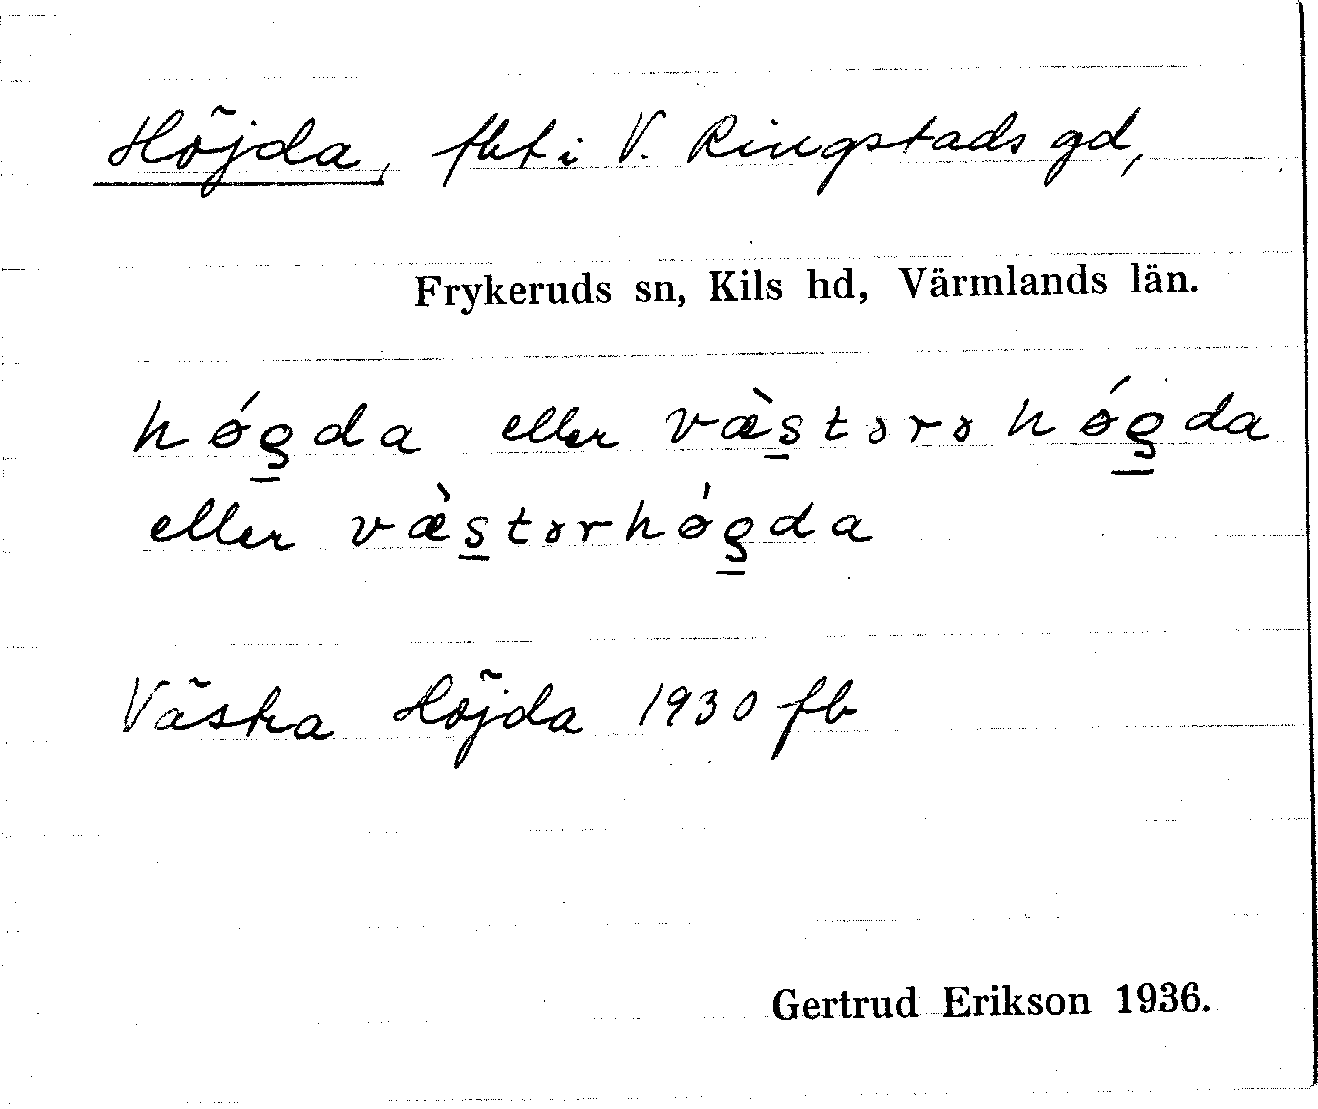 Höjda, fbt i V. Ringstads gd,
Frykeruds sn, Kils hd, Värmlands län.
hǿg̱da eller væ̀s̱tərə hǿg̱da
eller væ̀s̱tərhǿg̱da
Västra Höjda 1930 fb
Gertrud Erikson 1936.